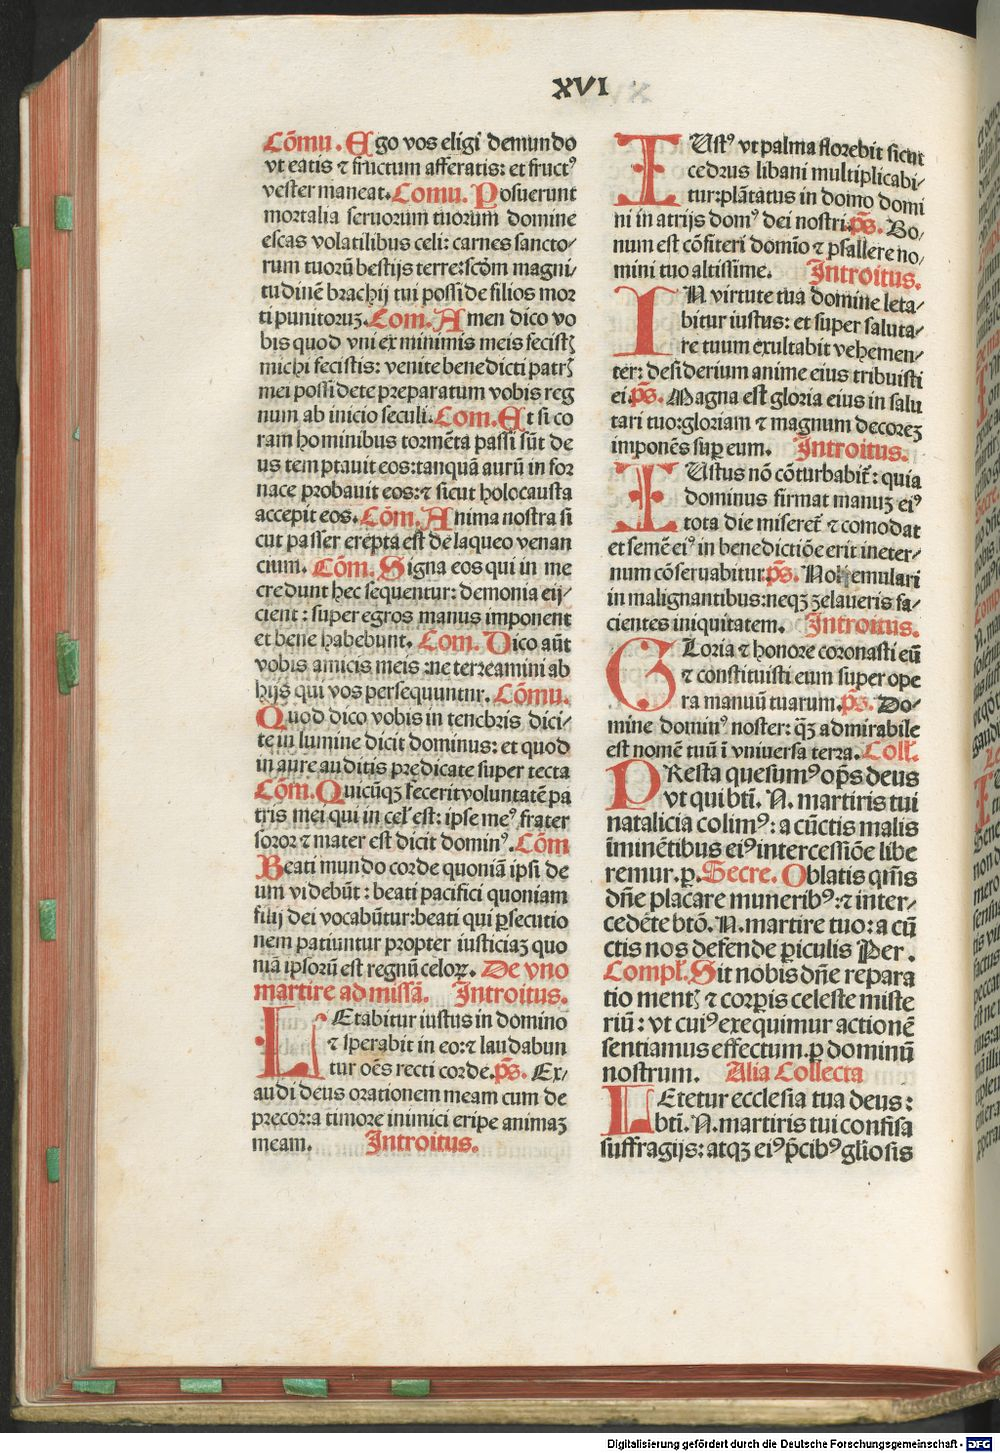 XVI
Cōmu. Ego vos eligi de mundo
vt eatis ⁊ fructum afferatis: et fructꝰ
vester maneat. Comu. Posuerunt
mortalia seruorum tuorum domine
escas volatilibus celi: carnes sancto/
rum tuorū bestijs terre: scḋm magni/
tudinē brachij tui posside filios mor
ti punitoruꝫ. Com. Amen dico vo
bis quod vni ex minimis meis fecistꝭ
michi fecistis: venite benedicti patrꝭ
mei possidete preparatum vobis reg
num ab inicio seculi. Com. Et si co
ram hominibus tormēta passi sūt de
us temptauit eos: tanquā aurū in for
nace probauit eos: ⁊ sicut holocausta
accepit eos. Cōm. Anima nostra si
cut passer erepta est de laqueo venan
cium. Cōm. Signa eos qui in me
credunt hec sequentur: demonia eij/
cient: super egros manus imponent
et bene habebunt. Com. Dico aūt
vobis amicis meis: ne terreamini ab
hijs qui vos persequuntur. Cōmu.
Quod dico vobis in tenebris dici/
te in lumine dicit dominus: et quod
in aure auditis predicate super tecta
Cōm. Quicūqꝫ fecerit voluntatē pa
tris mei qui in cel̄ est: ipse meꝰ frater
soror ⁊ mater est dicit dominꝰ. Cōm
Beati mundo corde quoniā ipsi de
um videbūt: beati pacifici quoniam
filij dei vocabūtur: beati qui ꝑsecutio
nem patiuntur propter iusticiaꝫ quo
niā ipsorū est regnū celoꝝ. De vno
martire ad missā. Introitus.
LEtabitur iustus in domino
⁊ sperabit in eo: ⁊ laudabun
tur oēs recti corde. p̄s. Ex/
audi deus orationem meam cum de
precor: a timore inimici eripe animaꝫ
meam. Introitus.
IUstꝰ vt palma florebit sicut
cedrus libani multiplicabi/
tur: plātatus in domo domi
ni in atrijs domꝰ dei nostri. p̄s. Bo/
num est cōfiteri domīo ⁊ psallere no/
mini tuo altissime. Introitus.
IN virtute tua domine leta/
bitur iustus: et super saluta/
re tuum exultabit vehemen/
ter: desiderium anime eius tribuisti
ei. p̄s. Magna est gloria eius in salu
tari tuo: gloriam ⁊ magnum decoreꝫ
imponēs suꝑ eum. Introitus.
IUstus nō cōturbabit᷑: quia
dominus firmat manuꝫ eiꝰ
tota die miseret᷑ ⁊ comodat
et semē eiꝰ in benedictiōe erit in eter/
num cōseruabitur. p̄s. Noli emulari
in malignantibus: neqꝫ zelaueris fa/
cientes iniquitatem. Introitus.
GLoria ⁊ honore coronasti eū
⁊ constituisti eum super ope
ra manuū tuarum. p̄s. Do/
mine dominꝰ noster: q̄ꝫ admirabile
est nomē tuū ī vniuersa terra. Coll̄.
PResta quesumꝰ op̄s deus
vt qui bt̄i. N. martiris tui
natalicia colimꝰ: a cūctis malis
īminētibus eiꝰ intercessiōe libe
remur. p. Secre. Oblatis qm̄s
dn̄e placare muneribꝰ: ⁊ inter/
cedēte btō. N. martire tuo: a cū
ctis nos defende ꝑiculis Per.
Compl̄. Sit nobis dn̄e repara
tio mentꝭ ⁊ corꝑis celeste miste
riū: vt cuiꝰ exequimur actionē
sentiamus effectum. ꝑ dominū
nostrum. Alia Collecta
LEtetur ecclesia tua deus:
bt̄i. N. martiris tui confisa
suffragijs: atqꝫ eiꝰ p̄cibꝰ gl̄iosis
Digitalisierung gefördert durch die Deutsche Forschungsgemeinschaft - DFG